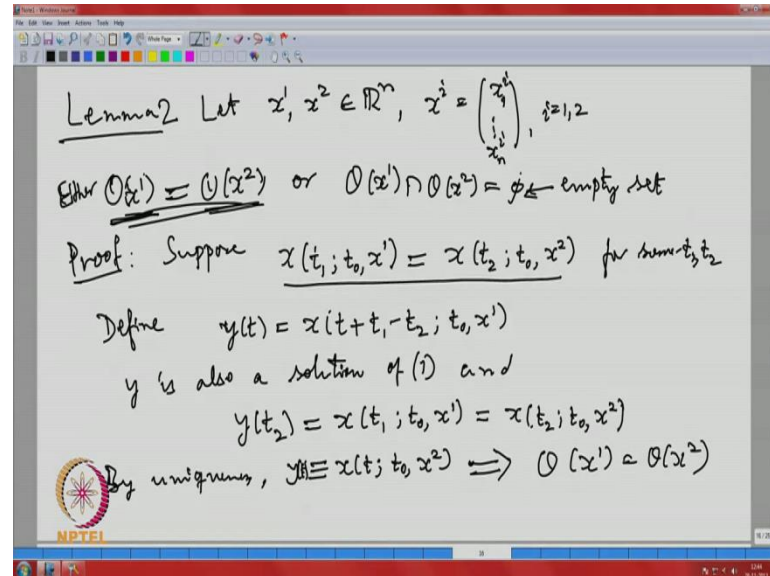 Note1 - Windows Journal
File Edit View Insert Actions Tools Help
Lemma2 Let x¹, x² ∈ ℝⁿ, xⁱ = (x₁ⁱ ⋮ xₙⁱ), i=1,2
Either O(x¹) = O(x²) or O(x¹) ∩ O(x²) = ϕ ← empty set
Proof: Suppose x(t₁; t₀, x¹) = x(t₂; t₀, x²) for some t₁, t₂
Define y(t) = x(t + t₁ - t₂; t₀, x¹)
y is also a solution of (1) and
y(t₂) = x(t₁; t₀, x¹) = x(t₂; t₀, x²)
By uniqueness, y(t) ≡ x(t; t₀, x²) ⟹ O(x¹) = O(x²)
NPTEL